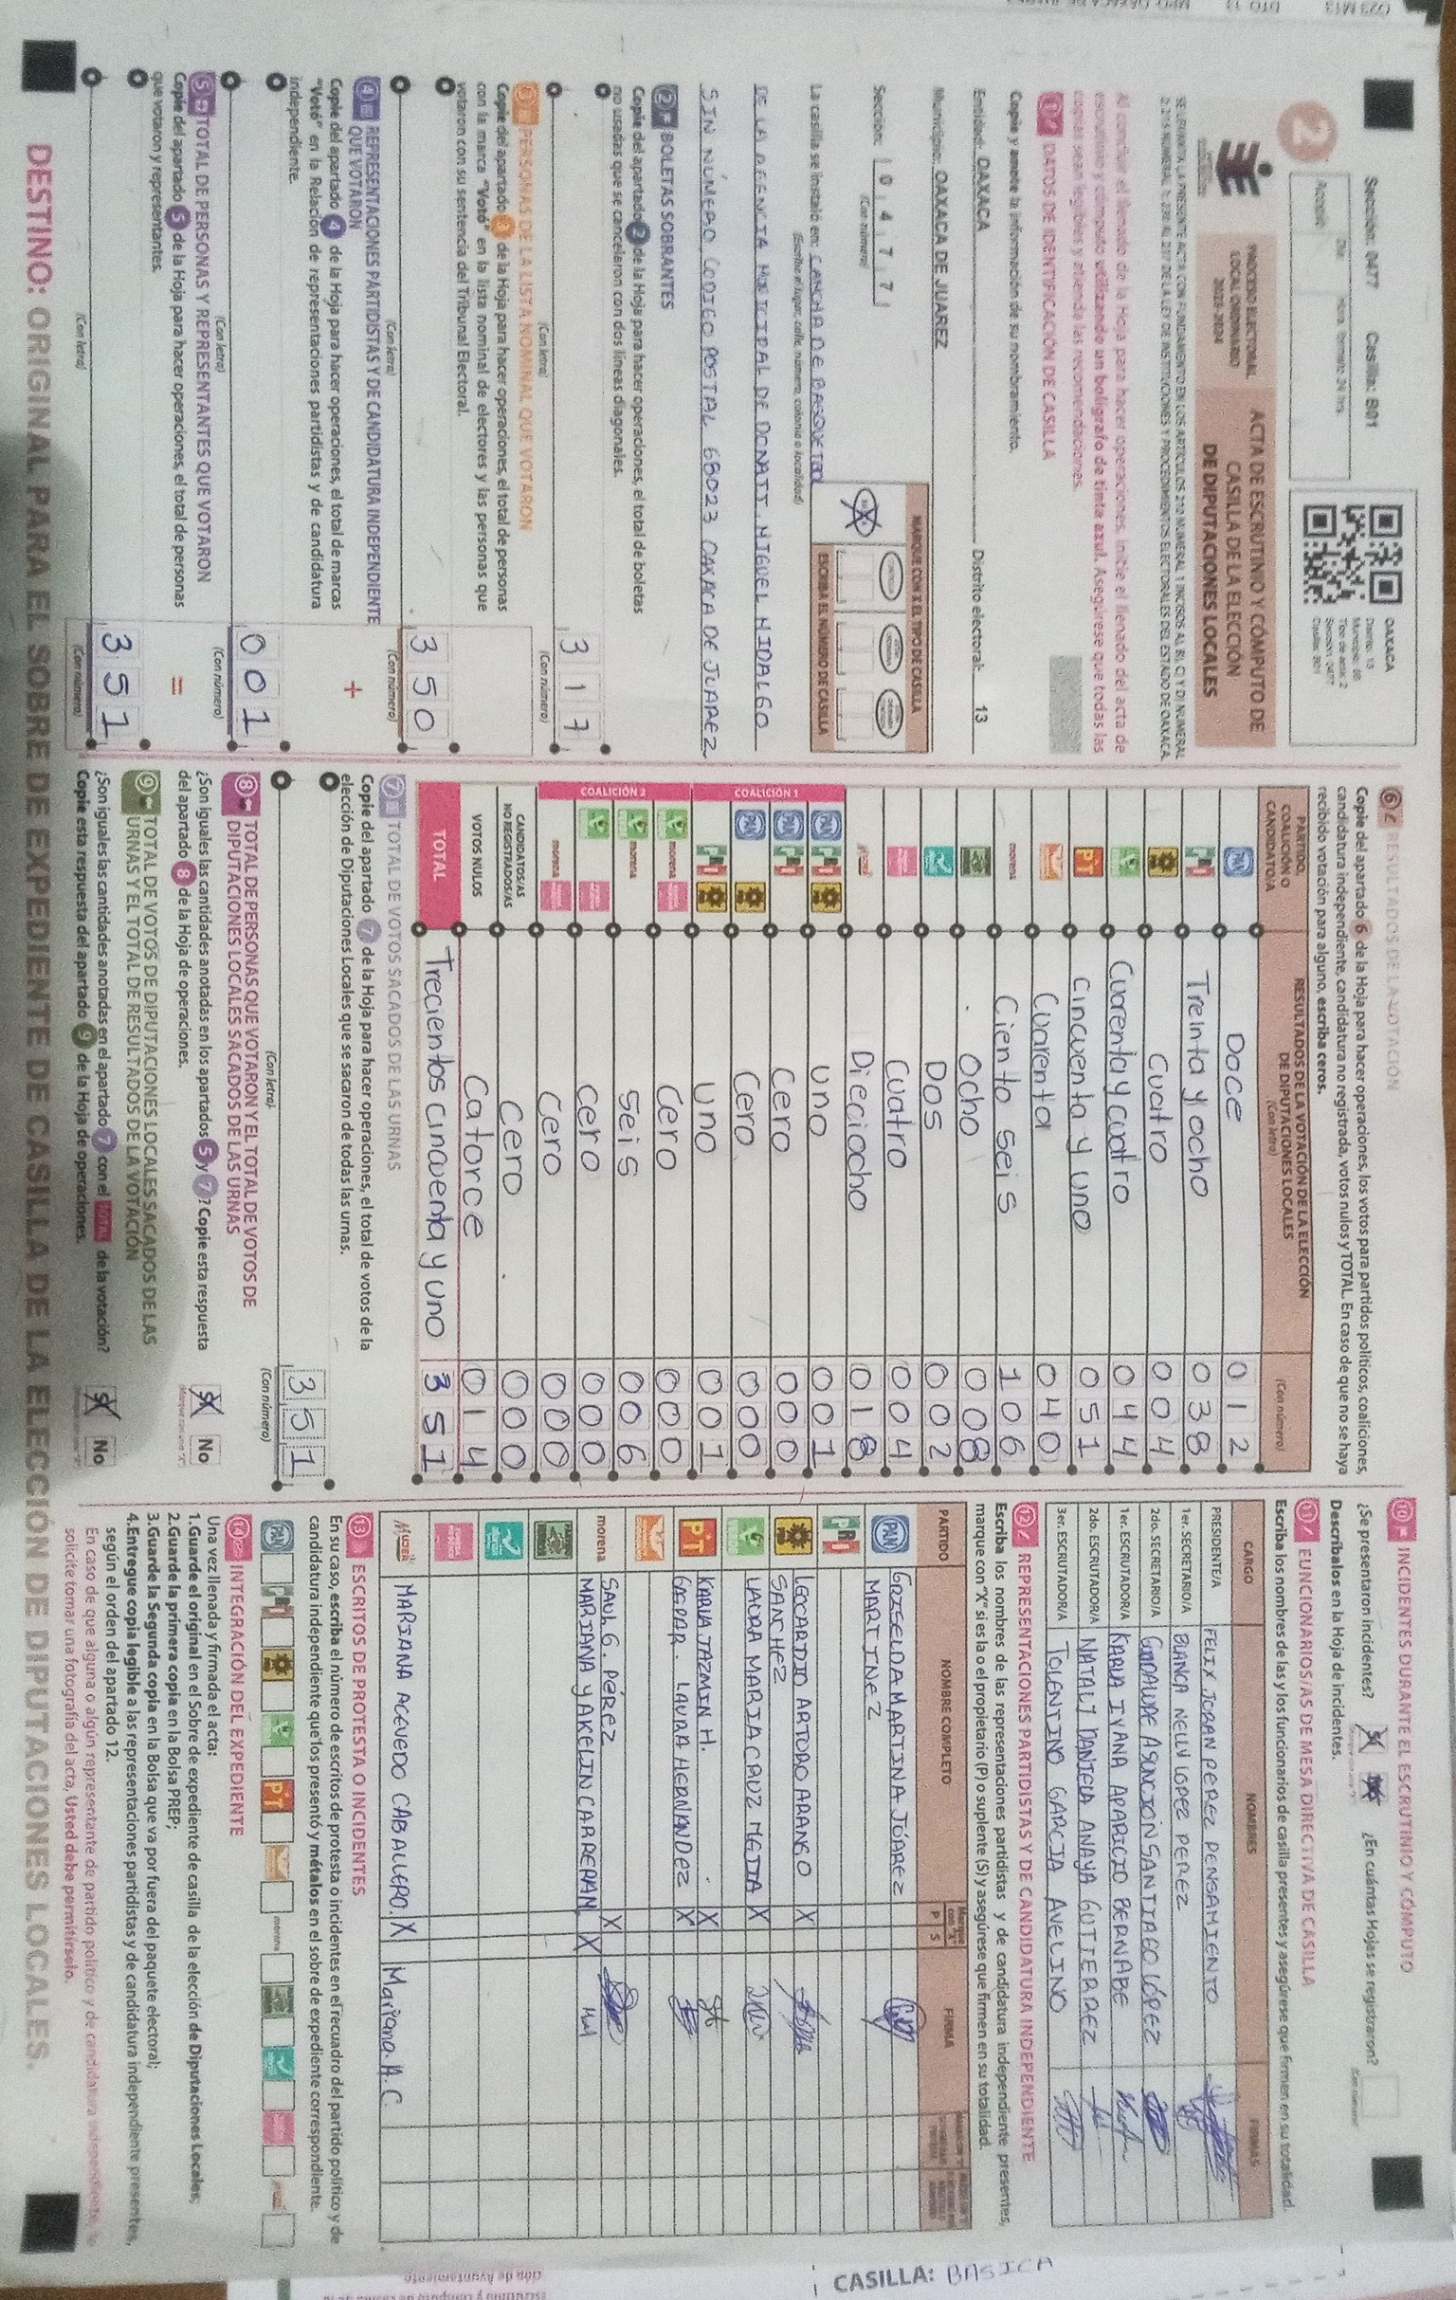 Sección: 0477 Casilla: B01
Día: Hora, formato 24 hrs.
2
Acopio
OAXACA
Distrito: 13
Tipo de acta: 2
Sección: 0477
Casilla: B01
PROCESO ELECTORAL
LOCAL ORDINARIO
2023-2024
ACTA DE ESCRUTINIO Y CÓMPUTO DE
CASILLA DE LA ELECCIÓN
DE DIPUTACIONES LOCALES
Al concluir el llenado de la Hoja para hacer operaciones, inicie el llenado del acta de
escrutinio y cómputo utilizando un bolígrafo de tinta azul. Asegúrese que todas las
copias sean legibles y atienda las recomendaciones.
1 DATOS DE IDENTIFICACIÓN DE CASILLA
Copie y anote la información de su nombramiento.
Entidad: OAXACA Distrito electoral: 13
Municipio: OAXACA DE JUAREZ
Sección: 0 4 7 7
(Con número)
MARQUE CON X EL TIPO DE CASILLA
ESCRIBA EL NÚMERO DE CASILLA
La casilla se instaló en: CANCHA DE BASQUETBOL
(Escriba el lugar, calle, número, colonia o localidad)
DE LA AGENCIA MUNICIPAL DE DONAJI, MIGUEL HIDALGO
SIN NÚMERO CODIGO POSTAL 68023 OAXACA DE JUAREZ
2 BOLETAS SOBRANTES
Copie del apartado 2 de la Hoja para hacer operaciones, el total de boletas
no usadas que se cancelaron con dos líneas diagonales.
3 1 7
(Con letra) (Con número)
3 PERSONAS DE LA LISTA NOMINAL QUE VOTARON
Copie del apartado 3 de la Hoja para hacer operaciones, el total de personas
con la marca "Votó" en la lista nominal de electores y las personas que
votaron con su sentencia del Tribunal Electoral.
3 5 0
(Con letra) (Con número)
4 REPRESENTACIONES PARTIDISTAS Y DE CANDIDATURA INDEPENDIENTE
QUE VOTARON
Copie del apartado 4 de la Hoja para hacer operaciones, el total de marcas
"Votó" en la Relación de representaciones partidistas y de candidatura
independiente.
+
0 0 1
(Con letra) (Con número)
5 TOTAL DE PERSONAS Y REPRESENTANTES QUE VOTARON
Copie del apartado 5 de la Hoja para hacer operaciones, el total de personas
que votaron y representantes.
=
3 5 1
(Con letra) (Con número)
6 RESULTADOS DE LA VOTACIÓN
Copie del apartado 6 de la Hoja para hacer operaciones, los votos para partidos políticos, coaliciones,
candidatura independiente, candidatura no registrada, votos nulos y TOTAL. En caso de que no se haya
recibido votación para alguno, escriba ceros.
PARTIDO, COALICIÓN O CANDIDATO/A
RESULTADOS DE LA VOTACIÓN DE LA ELECCIÓN DE DIPUTACIONES LOCALES
(Con letra) (Con número)
PAN Doce 0 1 2
PRI Treinta y ocho 0 3 8
Cuatro 0 0 4
Cuarenta y cuatro 0 4 4
PT Cincuenta y uno 0 5 1
Cuarenta 0 4 0
morena Ciento seis 1 0 6
Ocho 0 0 8
Dos 0 0 2
Cuatro 0 0 4
Dieciocho 0 1 8
COALICIÓN 1
PAN PRI uno 0 0 1
PAN PRI Cero 0 0 0
PAN Cero 0 0 0
PRI uno 0 0 1
COALICIÓN 2
morena Cero 0 0 0
morena Seis 0 0 6
Cero 0 0 0
morena Cero 0 0 0
CANDIDATOS/AS NO REGISTRADOS/AS Cero 0 0 0
VOTOS NULOS Catorce 0 1 4
TOTAL Trecientos cincuenta y uno 3 5 1
7 TOTAL DE VOTOS SACADOS DE LAS URNAS
Copie del apartado 7 de la Hoja para hacer operaciones, el total de votos de la
elección de Diputaciones Locales que se sacaron de todas las urnas.
3 5 1
(Con letra) (Con número)
8 TOTAL DE PERSONAS QUE VOTARON Y EL TOTAL DE VOTOS DE
DIPUTACIONES LOCALES SACADOS DE LAS URNAS
¿Son iguales las cantidades anotadas en los apartados 5 y 7? Copie esta respuesta
del apartado 8 de la Hoja de operaciones.
Sí No
9 TOTAL DE VOTOS DE DIPUTACIONES LOCALES SACADOS DE LAS
URNAS Y EL TOTAL DE RESULTADOS DE LA VOTACIÓN
¿Son iguales las cantidades anotadas en el apartado 7 con el TOTAL de la votación?
Copie esta respuesta del apartado 9 de la Hoja de operaciones.
Sí No
10 INCIDENTES DURANTE EL ESCRUTINIO Y CÓMPUTO
¿Se presentaron incidentes? ¿En cuántas Hojas se registraron?
Descríbalos en la Hoja de incidentes.
11 FUNCIONARIOS/AS DE MESA DIRECTIVA DE CASILLA
Escriba los nombres de las y los funcionarios de casilla presentes y asegúrese que firmen en su totalidad.
CARGO NOMBRES FIRMAS
PRESIDENTE/A FELIX JOAAN PEREZ PENSAMIENTO
1er. SECRETARIO/A BLANCA NELLY LOPEZ PEREZ
2do. SECRETARIO/A GUADALUPE ASUNCION SANTIAGO LÓPEZ
1er. ESCRUTADOR/A KARLA IVANA APARICIO BERNABE
2do. ESCRUTADOR/A NATALI DANIELA ANAYA GUTIERREZ
3er. ESCRUTADOR/A TOLENTINO GARCIA AVELINO
12 REPRESENTACIONES PARTIDISTAS Y DE CANDIDATURA INDEPENDIENTE
Escriba los nombres de las representaciones partidistas y de candidatura independiente presentes,
marque con "X" si es la o el propietario (P) o suplente (S) y asegúrese que firmen en su totalidad.
PARTIDO NOMBRE COMPLETO P S FIRMA
PAN GRISELDA MARTINA JUÁREZ
MARTINEZ
PRI
LEOCARDIO ARTURO ARANGO X
SANCHEZ
LAURA MARIA CRUZ MEJIA X
KARLA JAZMIN H. X
PT GASPAR. LAURA HERNANDEZ X
morena SAUL G. PÉREZ X
MARIANA YAKELIN CARRERAN X
MUJER MARIANA ACEVEDO CABALLERO. X Mariana. A. C.
13 ESCRITOS DE PROTESTA O INCIDENTES
En su caso, escriba el número de escritos de protesta o incidentes en el recuadro del partido político y de
candidatura independiente que los presentó y métalos en el sobre de expediente correspondiente.
PAN PRI PT morena
14 INTEGRACIÓN DEL EXPEDIENTE
Una vez llenada y firmada el acta:
1.Guarde el original en el Sobre de expediente de casilla de la elección de Diputaciones Locales;
2.Guarde la primera copia en la Bolsa PREP;
3.Guarde la Segunda copia en la Bolsa que va por fuera del paquete electoral;
4.Entregue copia legible a las representaciones partidistas y de candidatura independiente presentes,
según el orden del apartado 12.
En caso de que alguna o algún representante de partido político y de candidatura independiente, le
solicite tomar una fotografía del acta, Usted debe permitírselo.
DESTINO: ORIGINAL PARA EL SOBRE DE EXPEDIENTE DE CASILLA DE LA ELECCIÓN DE DIPUTACIONES LOCALES.
CASILLA: BASICA